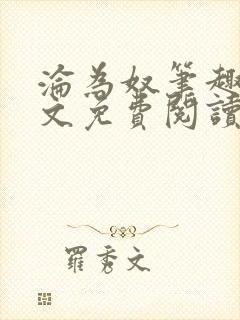 淪為奴筆趣
文免費閱讀
羅秀文